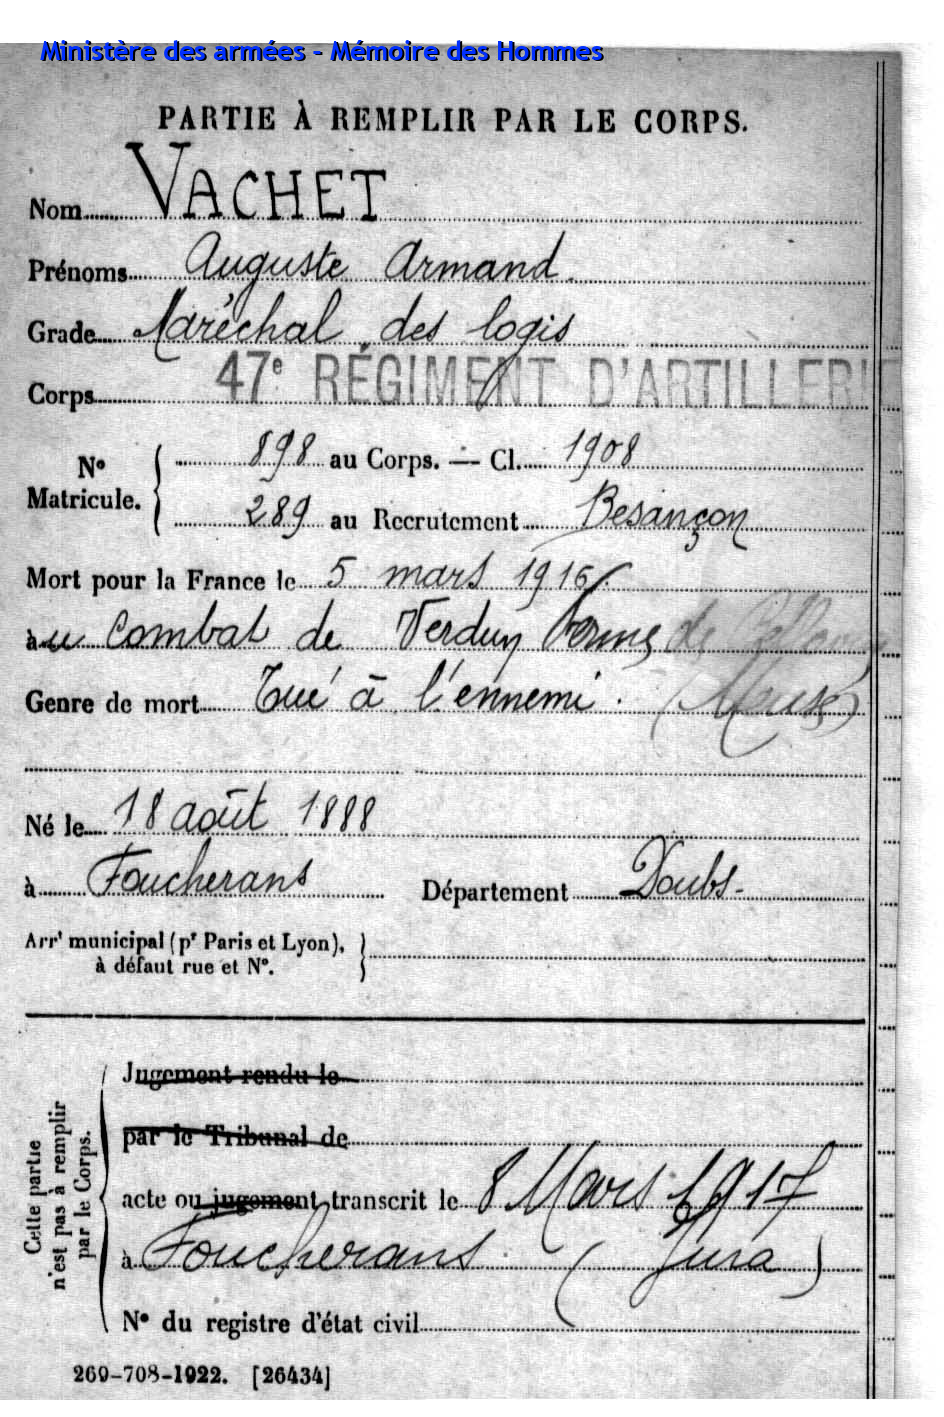 Ministère des armées - Mémoire des Hommes
PARTIE À REMPLIR PAR LE CORPS.
Nom VACHET
Prénoms Auguste Armand
Grade Maréchal des logis
Corps 47e RÉGIMENT D'ARTILLERIE
No Matricule. 898 au Corps. — Cl. 1908
289 au Recrutement Besançon
Mort pour la France le 5 mars 1916
à au Combat de Verdun Ferme de
Genre de mort Tué à l'ennemi. (Meuse)
Né le 18 août 1888
à Foucherans Département Doubs-
Arrt municipal (pr Paris et Lyon),
à défaut rue et No.
Cette partie
n'est pas à remplir
par le Corps.
Jugement rendu le
par le Tribunal de
acte ou jugement transcrit le 8 Mars 1917
à Foucherans (Jura)
No du registre d'état civil
269-708-1922. [26434]